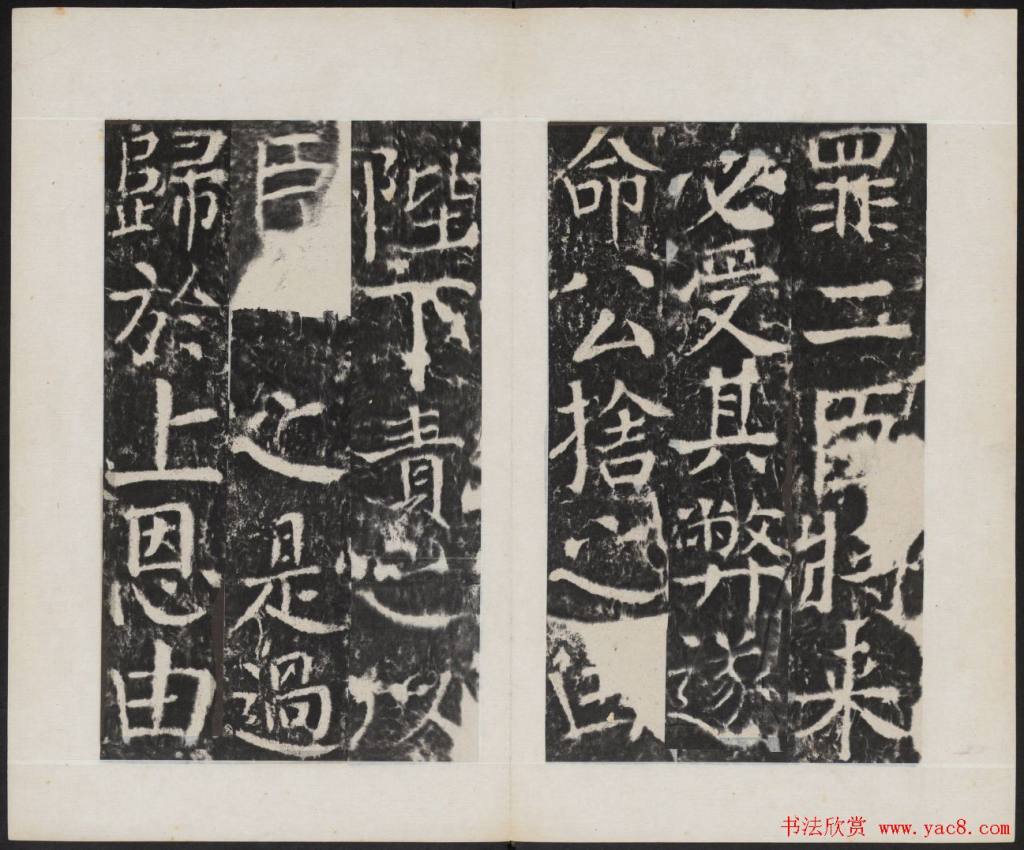 罪二臣將来
必受其弊遂
命公捨之
陛下責之以
臣之是過
歸於上恩由
书法欣赏 www.yac8.com